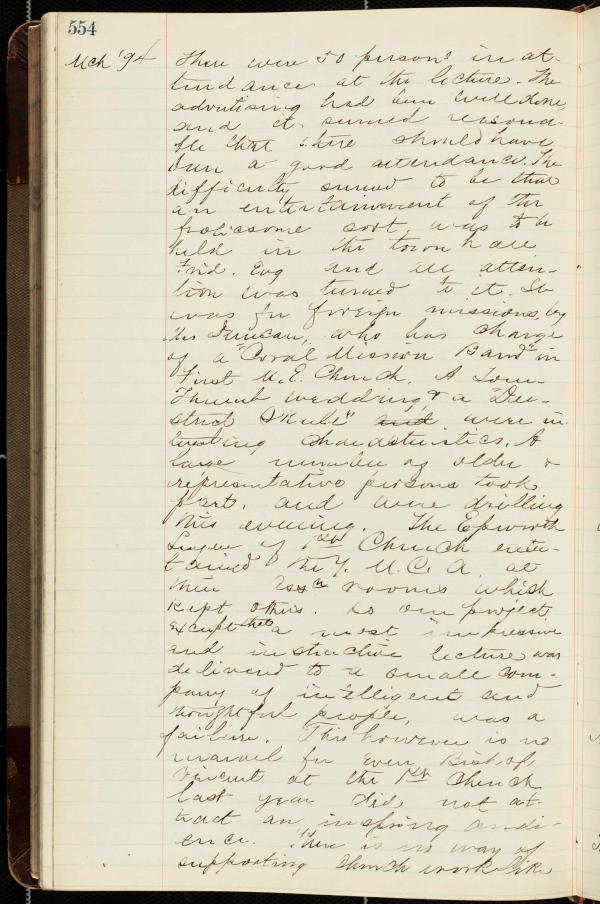 554
Mch '94 There were 50 persons in at-
tendance at the lecture. The
advertising had been well done,
and it seemed reasona-
ble that there should have
been a good attendance. The
difficulty seemed to be that
an entertainment of the
frolicsome sort, was to be
held in the town hall
Frid. Evg and all atten-
tion was turned to it. It
was for foreign missions, by
Mrs Duncan, who has charge
of a "Coral Mission Band" in
First M. E. Church. A Tom-
Thumb wedding, & a "Dee-
strict Skule" and were in-
teresting characteristics. A
large number of older &
representative persons took
part, and were drilling
this evening. The Epworth
League of 1st Church enter-
tained the Y. M. C. A. at
their rooms which
kept others. So our project,
except that a most impressive
and instructive lecture was
delivered to a small com-
pany of intelligent and
thoughtful people, was a
failure. This however is no
marvel for even Bishop
Vincent at the 1st Church
last year did not at-
tract an inspiring audi-
ence. There is no way of
supporting church work like